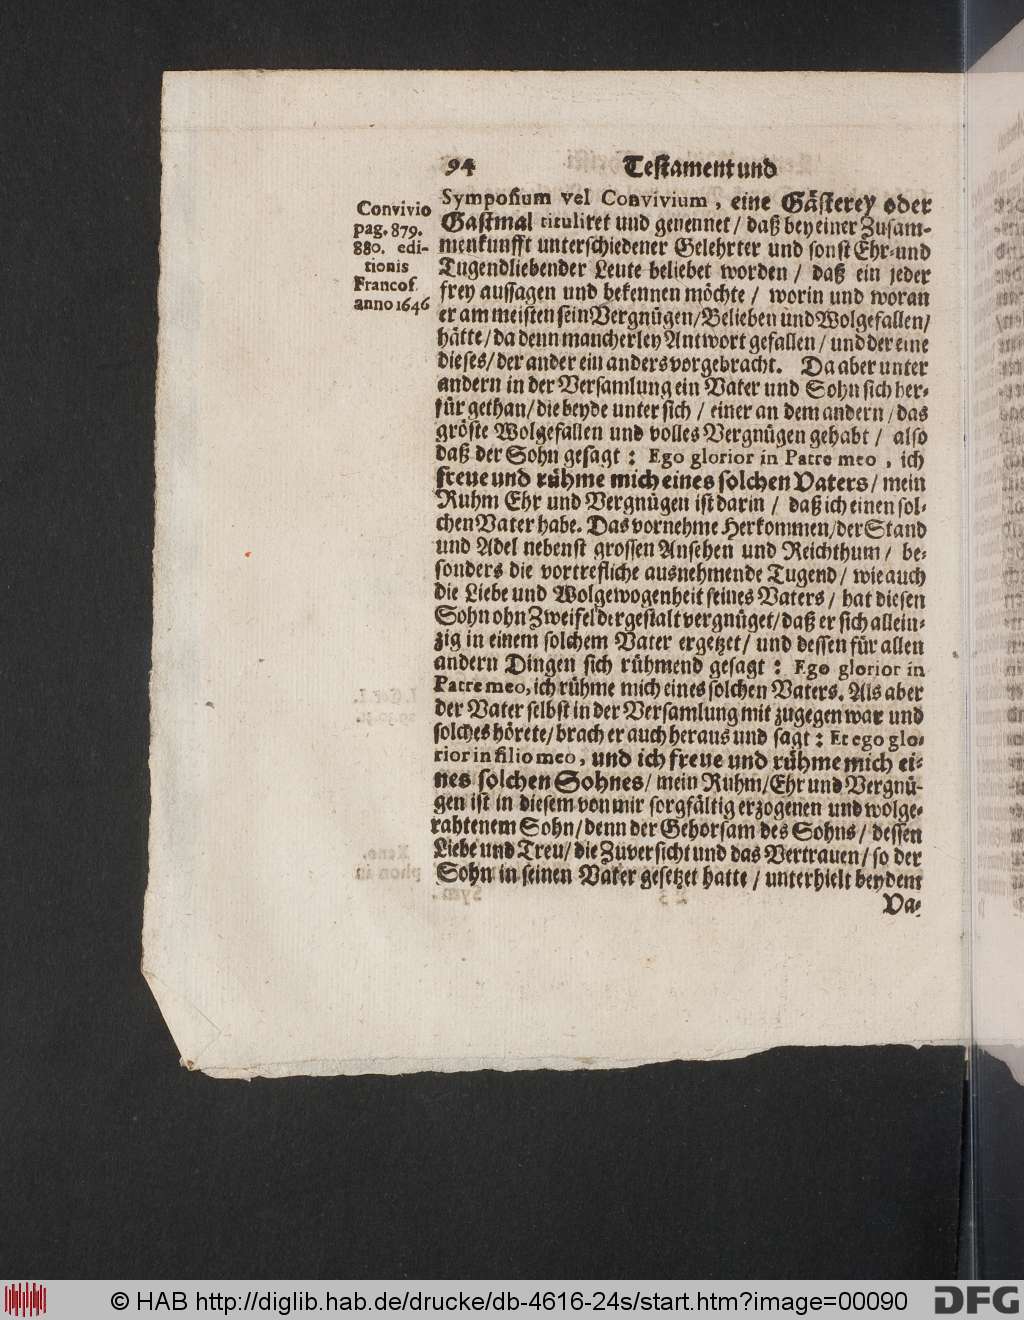 94 Testament und
Convivio
pag. 879.
880. edi-
tionis
Francof.
anno 1646
Symposium vel Convivium, eine Gästerey oder
Gastmal tituliret und genennet / daß bey einer Zusam-
menkunfft unterschiedener Gelehrter und sonst Ehr- und
Tugendliebender Leute beliebet worden / daß ein jeder
frey aussagen und bekennen möchte / worin und woran
er am meisten sein Vergnügen / Belieben und Wolgefallen /
hätte / da denn mancherley Antwort gefallen / und der eine
dieses / der ander ein anders vorgebracht. Da aber unter
andern in der Versamlung ein Vater und Sohn sich her-
für gethan / die beyde unter sich / einer an dem andern / das
gröste Wolgefallen und volles Vergnügen gehabt / also
daß der Sohn gesagt : Ego glorior in Patre meo, ich
freue und rühme mich eines solchen Vaters / mein
Ruhm Ehr und Vergnügen ist darin / daß ich einen sol-
chen Vater habe. Das vornehme Herkommen / der Stand
und Adel nebenst grossen Ansehen und Reichthum / be-
sonders die vortrefliche ausnehmende Tugend / wie auch
die Liebe und Wolgewogenheit seines Vaters / hat diesen
Sohn ohn Zweifel dergestalt vergnüget / daß er sich allein-
zig in einem solchem Vater ergetzet / und dessen für allen
andern Dingen sich rühmend gesagt : Ego glorior in
Patre meo, ich rühme mich eines solchen Vaters. Als aber
der Vater selbst in der Versamlung mit zugegen war und
solches hörete / brach er auch heraus und sagt : Et ego glo-
rior in filio meo, und ich freue und rühme mich ei-
nes solchen Sohnes / mein Ruhm / Ehr und Vergnü-
gen ist in diesem von mir sorgfältig erzogenen und wolge-
rahtenem Sohn / denn der Gehorsam des Sohns / dessen
Liebe und Treu / die Zuversicht und das Vertrauen / so der
Sohn in seinen Vater gesetzet hatte / unterhielt beydem
Va-
© HAB http://diglib.hab.de/drucke/db-4616-24s/start.htm?image=00090
DFG